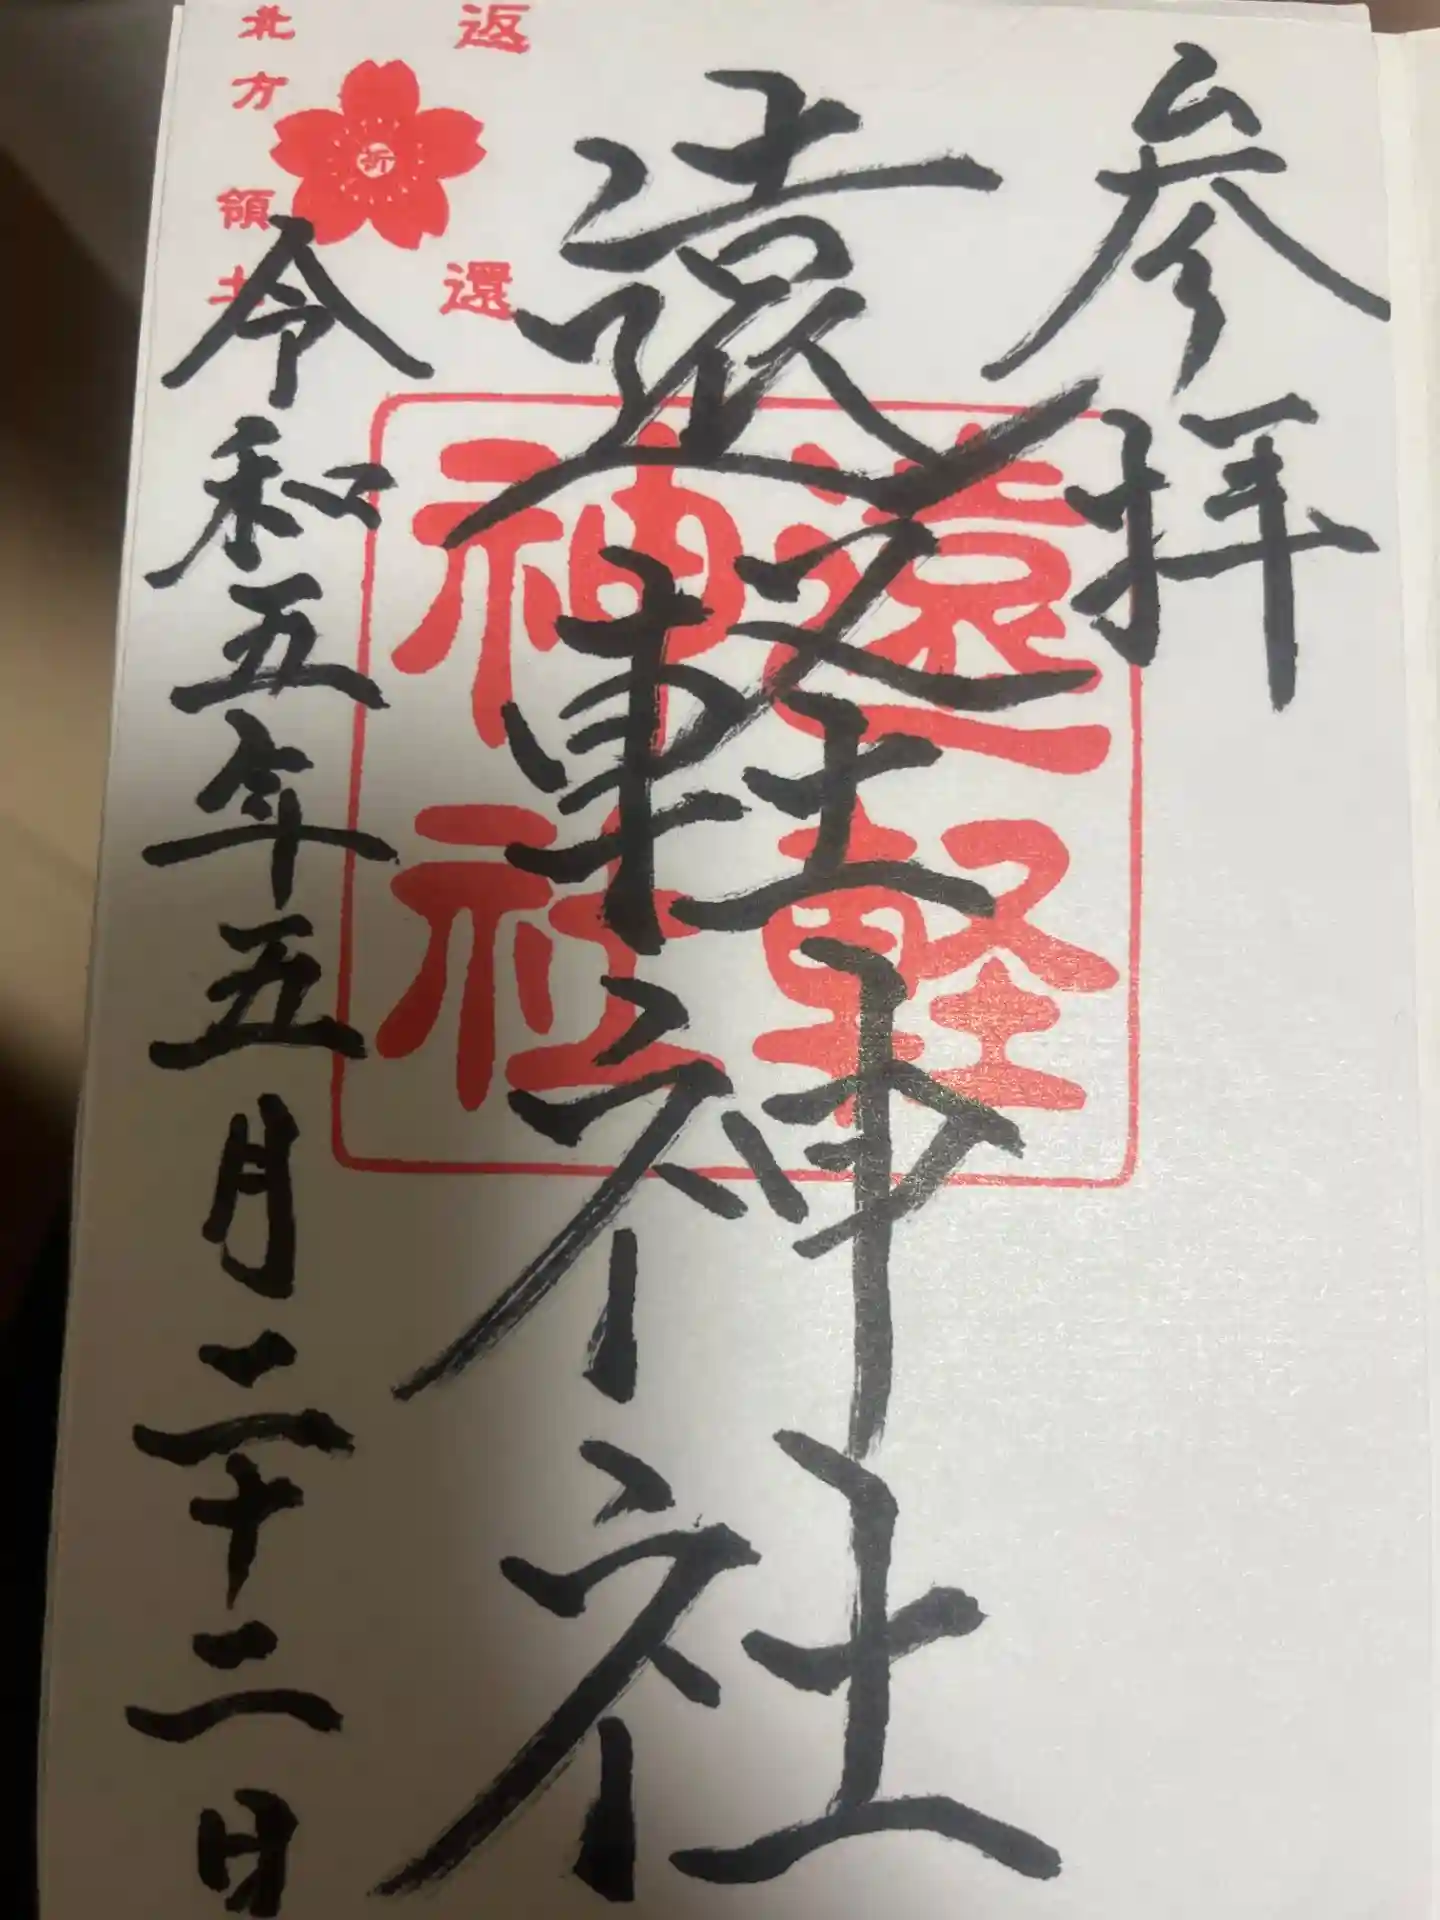 参拝
遠軽神社
遠軽
神社
返還
祈
北方領土
令和五年五月二十二日